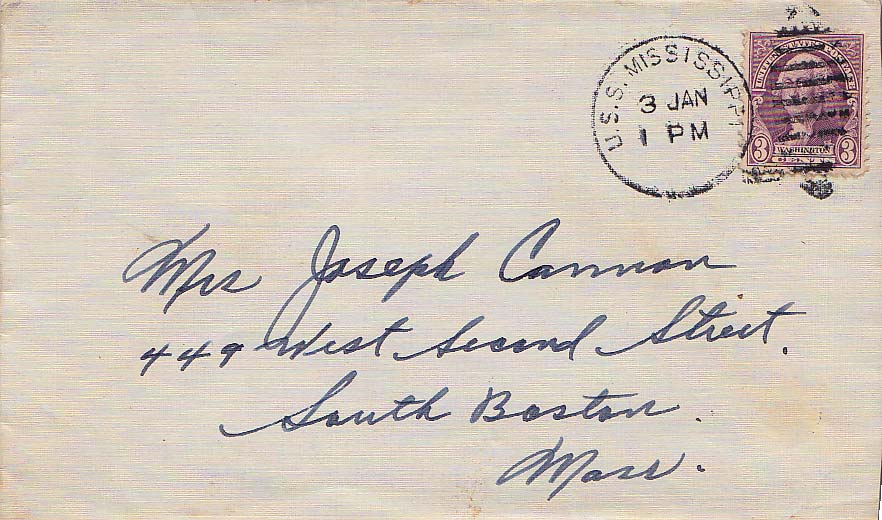 U.S.S. MISSISSIPPI
3 JAN
1 PM
UNITED STATES POSTAGE
WASHINGTON
3 CENTS 3
Mrs Joseph Cannon
449 West Second Street.
South Boston.
Mass.